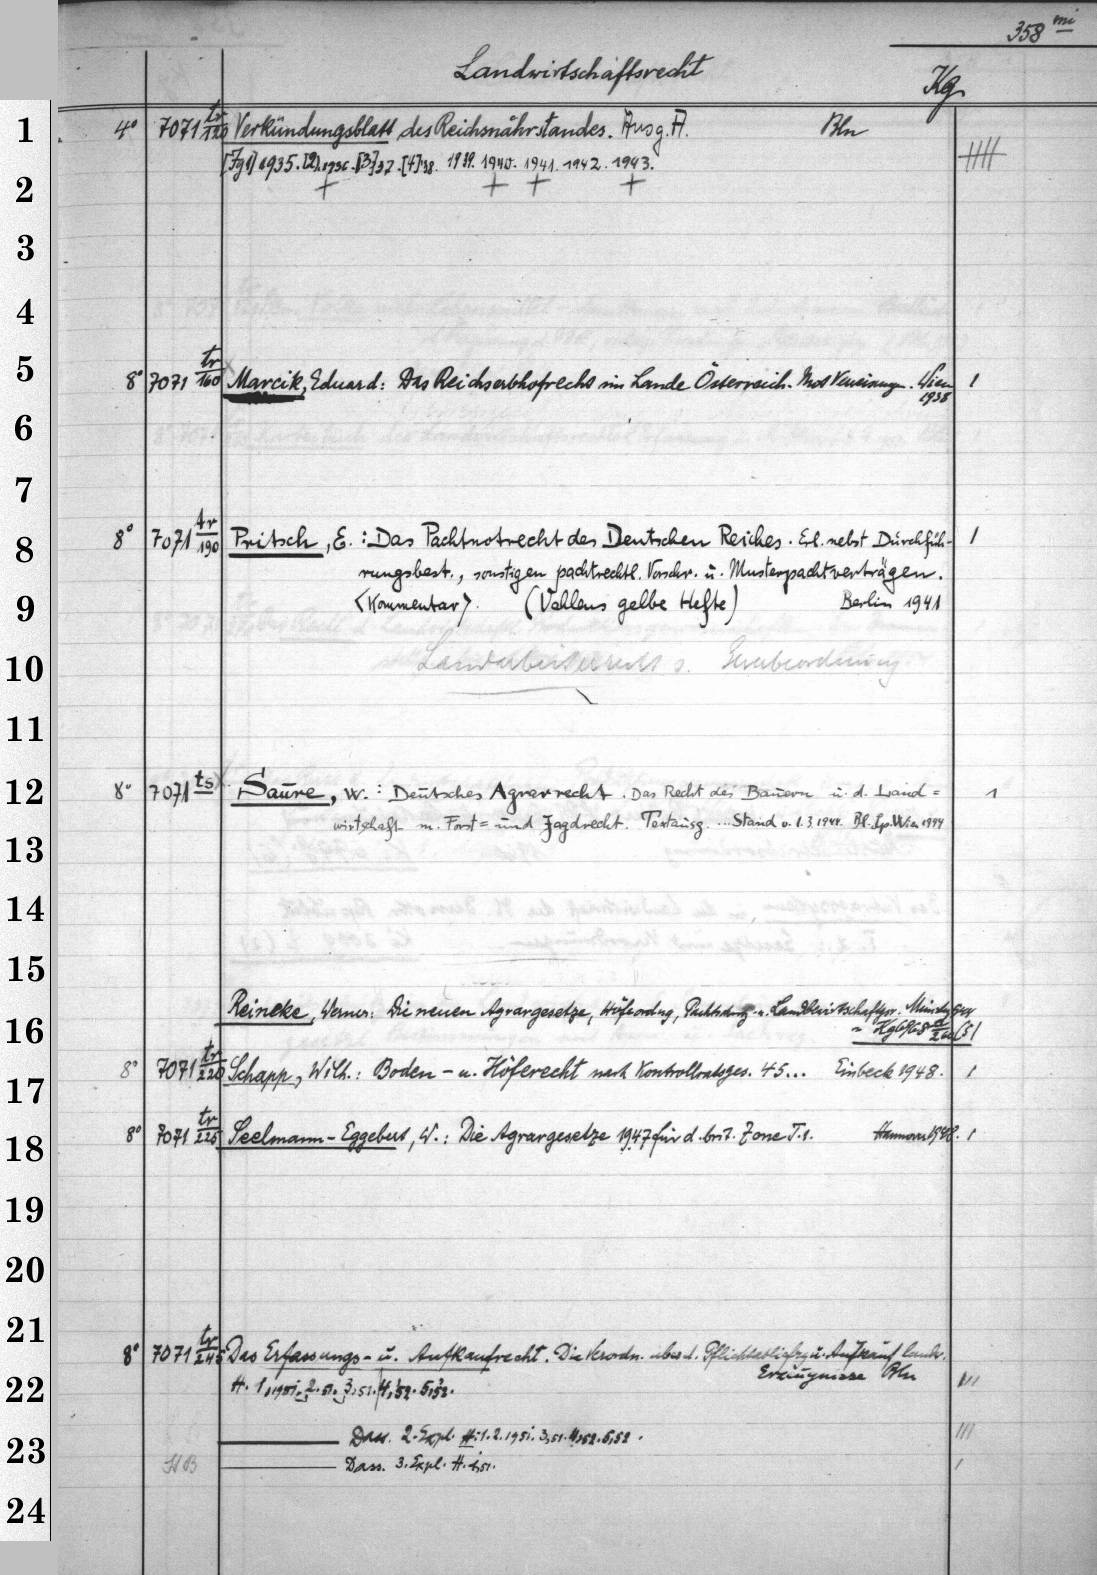 358 mi
Landwirtschaftsrecht Kg
1 4° 7071 tr/120 Verkündungsblatt des Reichsnährstandes. Ausg. A. Bln
[Jg1] 1935. [2].1936. [3]37. [4]38. 1939. 1940. 1941. 1942. 1943.
2 + + + +
3
4
5 8° 7071 tr/160 Marcik, Eduard: Das Reichserbhofrecht im Lande Österreich. Wien
1938 1
6
7
8 8° 7071 tr/190 Pritsch, E.: Das Pachtnotrecht des Deutschen Reiches. Erl. nebst Durchfüh- 1
rungsbest., sonstigen pachtrechtl. Vorschr. u. Musterpachtverträgen.
9 <Kommentar>. (Vahlens gelbe Hefte) Berlin 1941
10 Landarbeiterrecht s. Gewerbeordnung
11
12 8° 7071 ts Saure, W.: Deutsches Agrarrecht. Das Recht des Bauern u. d. Land= 1
wirtschaft m. Forst= und Jagdrecht. Textausg. ... Stand v. 1.3.1944. Bl. Lp. Wien 1944
13
14
15
Reineke, Werner: Die neuen Agrargesetze, Höfeordng, Pachtschutz u. Landwirtschaftsger. Münster
16
8° 7071 tr/220 Schapp, Wilh.: Boden- u. Höferecht nach Kontrollratsges. 45... Einbeck 1948. 1
17
18 8° 7071 tr/225 Seelmann-Eggebert, W.: Die Agrargesetze 1947 für d. brit. Zone T.1. Hannover 1948. 1
19
20
21
8° 7071 tr/245 Das Erfassungs- u. Aufkaufrecht. Die Verordn. über d. Pflichtablieferg u. Aufkauf landw.
Erzeugnisse Bln
22 H. 1,1951. 2.51. 3,51. 4,52. 5,52. III
23 Dass. 2. Expl. H. 1.2.1951. 3,51. 4,52. 5,52. III
Dass. 3. Expl. H. 1,51.
24